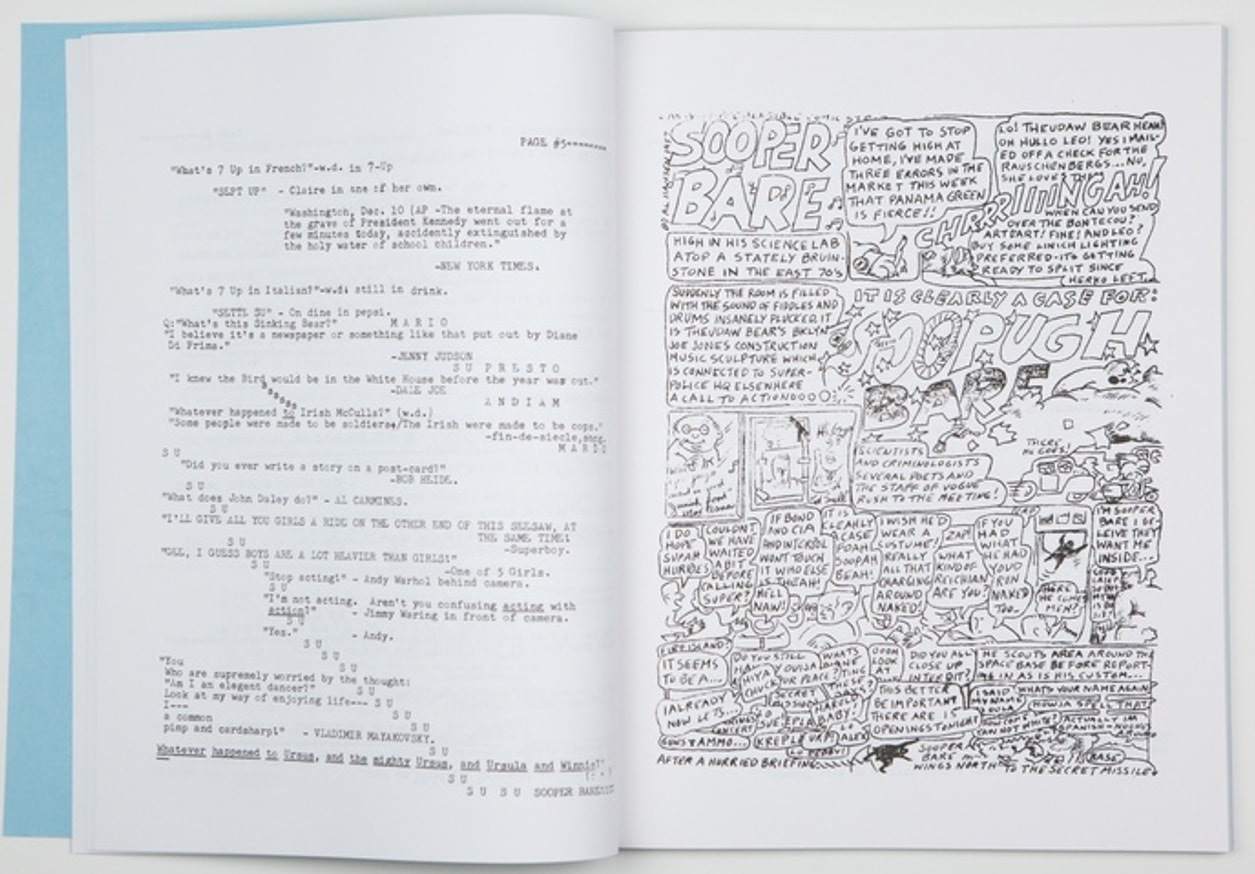 PAGE #5--------
"What's 7 Up in French?"-w.d. in 7-Up
"SEPT UP" - Claire in one of her own.
"Washington, Dec. 10 (AP -The eternal flame at
the grave of President Kennedy went out for a
few minutes today, accidently extinguished by
the holy water of school children."
-NEW YORK TIMES.
"What's 7 Up in Italian?"-w.d: still in drink.
"SETTE SU" - On dine in pepsi.
Q:"What's this Sinking Bear?" M A R I O
"I believe it's a newspaper or something like that put out by Diane
Di Prima."
-JENNY JUDSON
S U P R E S T O
"I knew the Bird would be in the White House before the year was out."
-DALE JOE
A N D I A M
"Whatever happened to Irish McCulla?" (w.d.)
"Some people were made to be soldiers/The Irish were made to be cops."
-fin-de-siecle,
M A R I O
S U
"Did you ever write a story on a post-card?"
-BOB HEIDE.
S U
"What does John Daley do?" - AL CARMINES.
S U
"I'LL GIVE ALL YOU GIRLS A RIDE ON THE OTHER END OF THIS SEESAW, AT
THE SAME TIME!
S U -Superboy.
"GEE, I GUESS BOYS ARE A LOT HEAVIER THAN GIRLS!"
S U -One of 5 Girls.
"Stop acting!" - Andy Warhol behind camera.
S U
"I'm not acting. Aren't you confusing acting with
action?" - Jimmy Waring in front of camera.
S U
"Yes." - Andy.
S U
S U
S U
"You
Who are supremely worried by the thought:
"Am I an elegant dancer?" S U
Look at my way of enjoying life--- S U
I---
a common S U
pimp and cardsharp!" - VLADIMIR MAYAKOVSKY.
S U
Whatever happened to Ursus, and the mighty Ursus, and Ursula and Winnie?"
S U
S U S U SOOPER BARE
SOOPER
BARE
I'VE GOT TO STOP
GETTING HIGH AT
HOME, I'VE MADE
THREE ERRORS IN THE
MARKET THIS WEEK
THAT PANAMA GREEN
IS FIERCE!!
LO! THEUDAW BEAR HEAH!
OH HULLO LEO! YES I MAIL-
ED OFF A CHECK FOR THE
RAUSCHENBERGS...NO,
SHE LOVES THIM
CHRRRIIIINGAH!
WHEN CAN YOU SEND
OVER THE BONTECOU?
ARTEART! FINE! AND LEO?
BUY SOME LINICH LIGHTING
PREFERRED-ITS GETTING
READY TO SPLIT SINCE
HERKO LEFT
HIGH IN HIS SCIENCE LAB
ATOP A STATELY BRUIN-
STONE IN THE EAST 70'S
SUDDENLY THE ROOM IS FILLED
WITH THE SOUND OF FIDDLES AND
DRUMS INSANELY PLUCKED. IT
IS THEUDAW BEAR'S BKLYN
JOE JONES CONSTRUCTION
MUSIC SCULPTURE WHICH
IS CONNECTED TO SUPER-
POLICE HQ ELSEWHERE
A CALL TO ACTIONOOO
IT IS CLEARLY A CASE FOR:
SOOPUGH
BARE
SCIENTISTS
AND CRIMINOLOGISTS
SEVERAL POETS AND
THE STAFF OF VOGUE
RUSH TO THE MEETING!
THERE
HE GOES!
I DO
HOPE
SUPAH
HURRIES
COULDN'T
WE HAVE
WAITED
A BIT
BEFORE
CALLING
SUPER?
IF BOND
AND CIA
AND INTERPOL
WONT TOUCH
IT WHO ELSE
IS THEAH!
HELL
NAW!
IT IS
CLEAHLY
A CASE
FOAH
SOOPAH
BEAH!
I WISH HE'D
WEAR A
COSTUME!
REALLY
ALL THAT
CHARGING
AROUND
NAKED!
ZAP!
WHAT
KIND OF
REICHIAN
ARE YOU?
IF YOU
HAD
WHAT
HE HAD
YOU'D
RUN
NAKED
TOO..
HERE
HE COMES
MEN?
I'M SOOPER
BARE I BE-
LEIVE THEY
WANT ME
INSIDE...
FIRE ISLAND?
IT SEEMS
TO BE A...
I ALREADY
NOW LETS...
GUNS & AMMO...
DO YOU STILL
YOUR PLACE?
SECRET
DID YOU ALL
CLOSE UP
INTERDIT?
THIS BETTER
BE IMPORTANT
THERE ARE 15
OPENINGS TONIGHT
HE SCOUTS AREA AROUND THE
SPACE BASE BEFORE REPORT-
ING IN AS IS HIS CUSTOM...
WHATS YOUR NAME AGAIN?
HOW IS A SPELL THAT
ACTUALLY IM
AFTER A HURRIED BRIEFING
SOOPER
BARE
WINGS NORTH
TO THE SECRET MISSILE
BASE